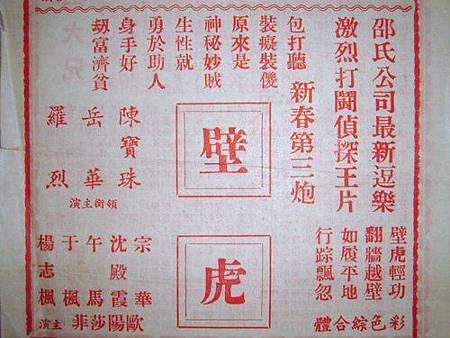 邵氏公司最新逗樂
激烈打鬪偵探王片
新春第三炮
包打聽
裝癡裝傻
原來是
神秘妙賊
生性就
勇於助人
身手好
劫富濟貧
壁虎
陳寶珠
岳華
羅烈
領銜主演
壁虎輕功
翻牆越壁
如履平地
行踪飄忽
彩色綜合體
宗華
沈殿霞
午馬
于楓
楊志楓
歐陽莎菲
主演